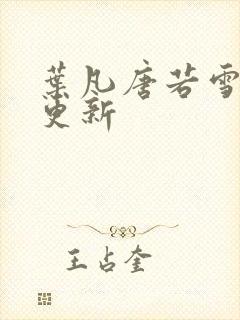 葉凡唐若雪
更新
王占奎